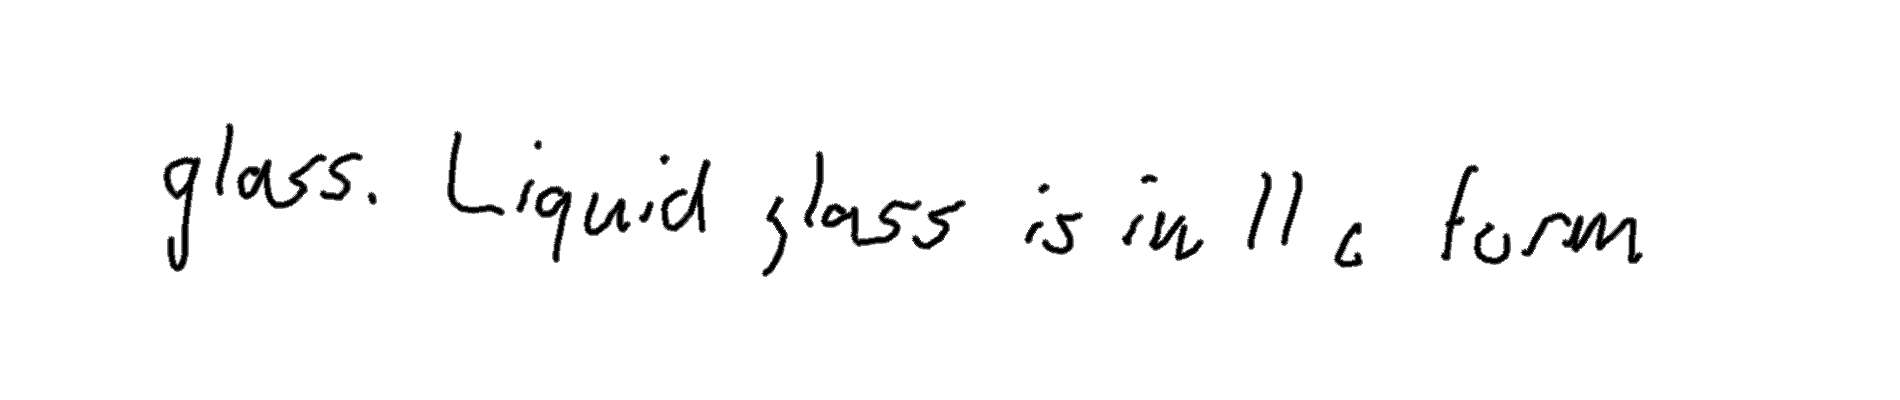 glass. Liquid glass is in 11 a form